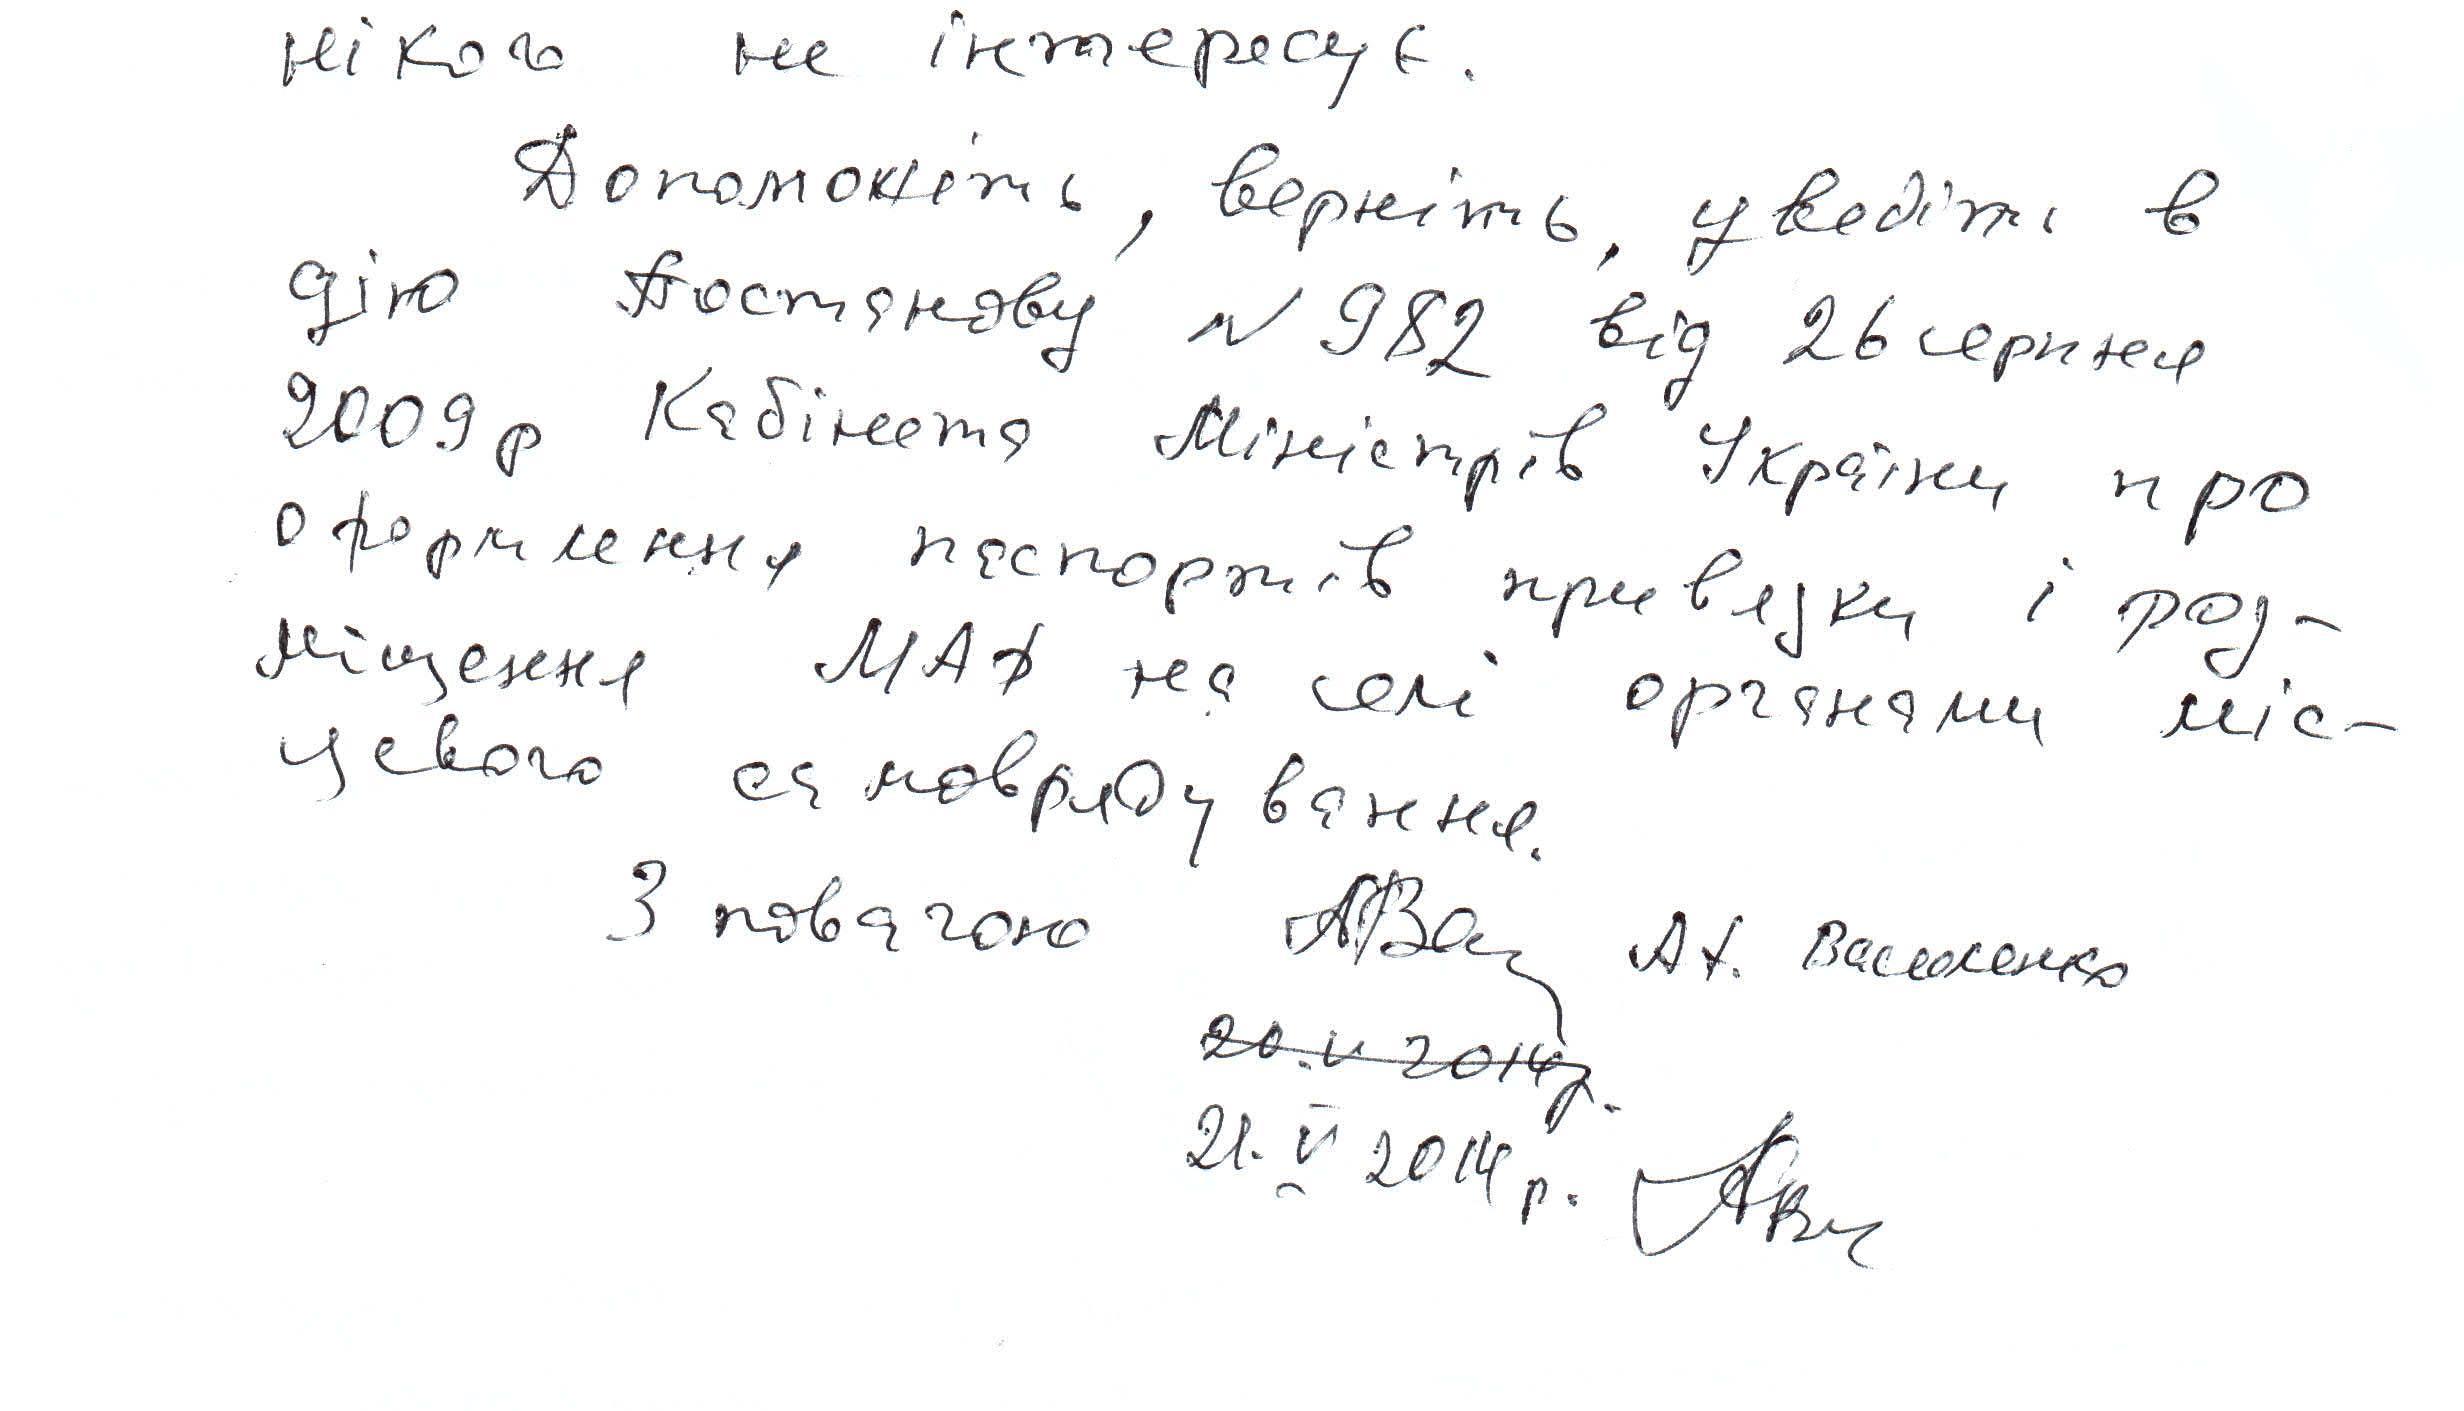 нікого не інтересує.
Допоможіть, верніть, уведіть в
дію Постанову N 982 від 26 серпня
2009р Кабінета Міністрів України про
оформлення паспортів привязки і роз-
міщення МАФ на селі органами міс-
цевого самоврядування.
З повагою А. Василенко
20.V 2014р.
21.V 2014р.